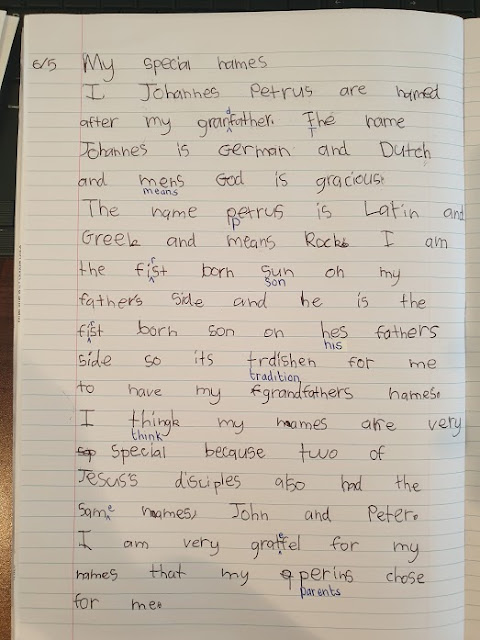 6/5 My special names
I Johannes Petrus are named
after my grandfather. The name
Johannes is German and Dutch
and mens God is gracious.
means
The name petrus is Latin and
p
Greek and means Rock. I am
the first born sun on my
son
fathers side and he is the
first born son on hes fathers
his
side so its trdishen for me
tradition
to have my grandfathers names.
I thingk my names are very
think
special because two of
Jesus's disciples also had the
same names, John and Peter.
I am very gratfel for my
names that my perins chose
parents
for me.